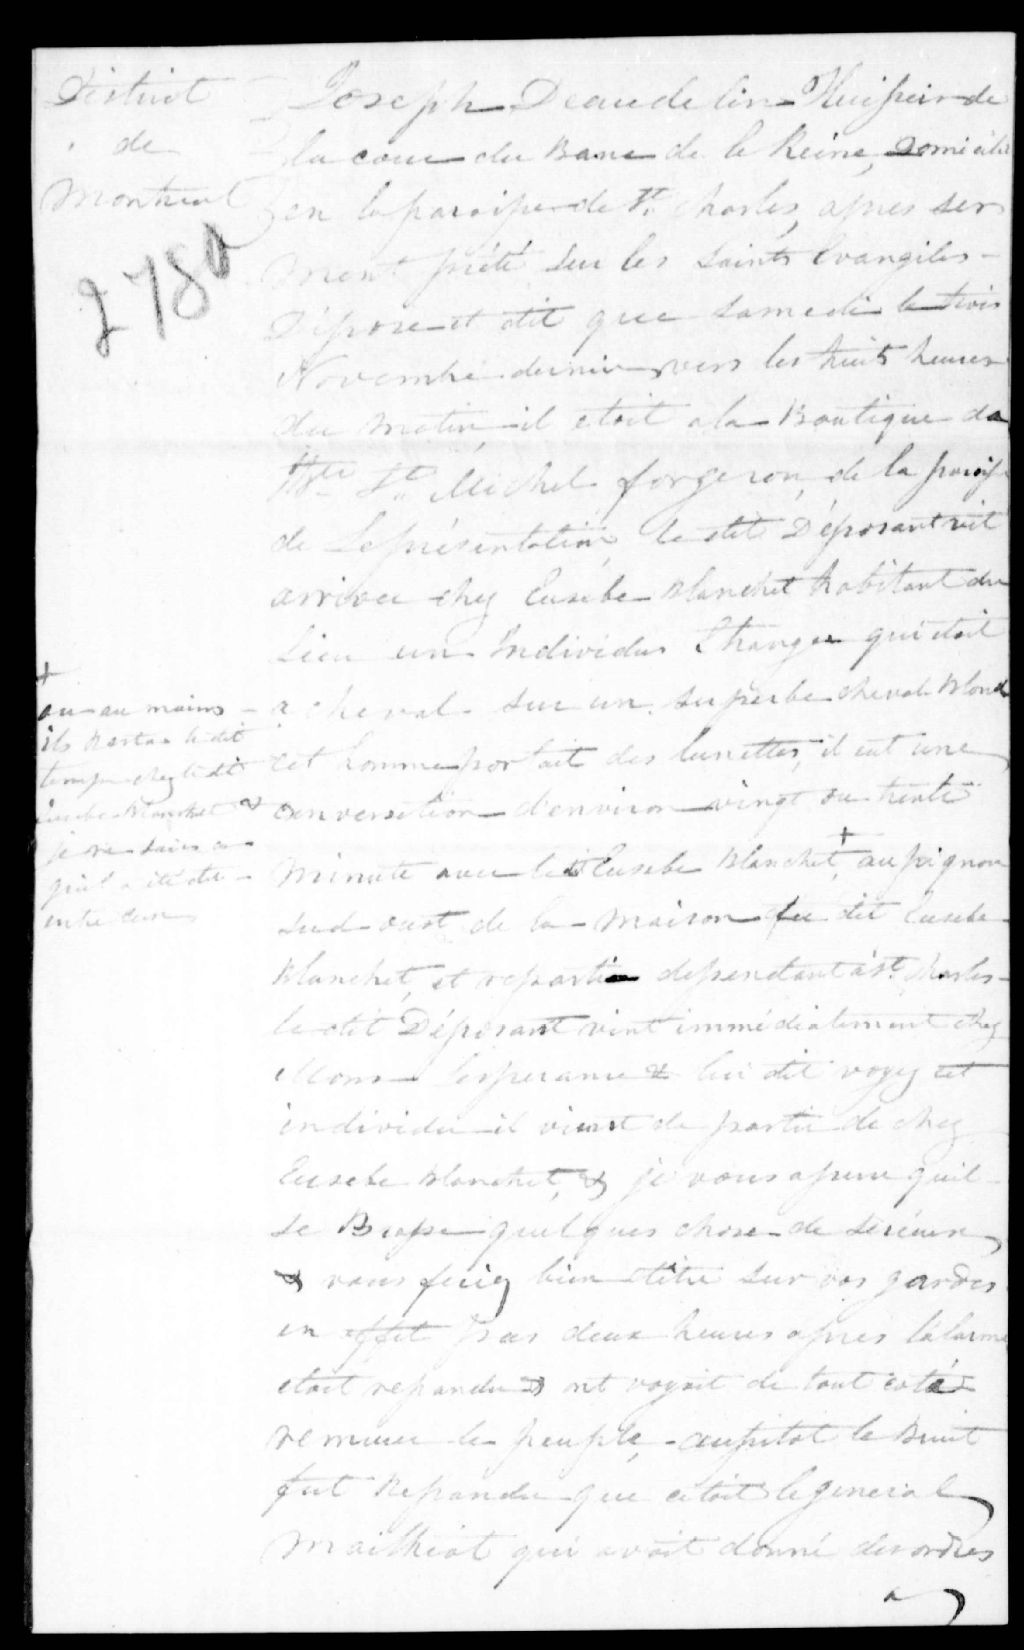 District
de
Montreal
2780
Joseph Deaudelin Huissier de
la cour du Banc de la Reine, Domicilié
en la paroisse de St. Charles, apres ser
ment prété sur les Saints Evangiles
Dépose et dit que Samedi le trois
Novembre dernier vers les huit heures
du matin, il etoit a la Boutique de
St. Michel forgeron, de la paroisse
de Leprésentation, le dit Déposant vit
arriver chez Eusebe Blanchet habitant du
Lieu un Individus Etranger qui étoit
a cheval sur un superbe cheval Blond
cet homme portait des lunettes, il eut une
conversation d'environ vingt ou trente
Minute avec le dit Eusebe Blanchet + au pignon
Sud ouest de la Maison du dit Eusebe
Blanchet, et repartie dependant à St. Charles
le dit Déposant vint immédiatement chez
Mons Lesperance & lui dit voyez cet
individu il vient de partir de chez
Eusebe Blanchet, & je vous assure quil
se Brasse quelques chose de Sérieux,
& vous feriez bien d'être sur vos gardes
en effet pas deux heures apres l'alarme
etoit repandu & ont voyait de tout coté
remuer le peuple, aussitot le Bruit
fut Repandu que cétoit le general
Mailhiot qui avoit donné des ordres
a
+
ou au moins
ils Resta le dit
temps chez le dit
Eusebe Blanchet &
je ne sais ce
qui a été dit
entre eux